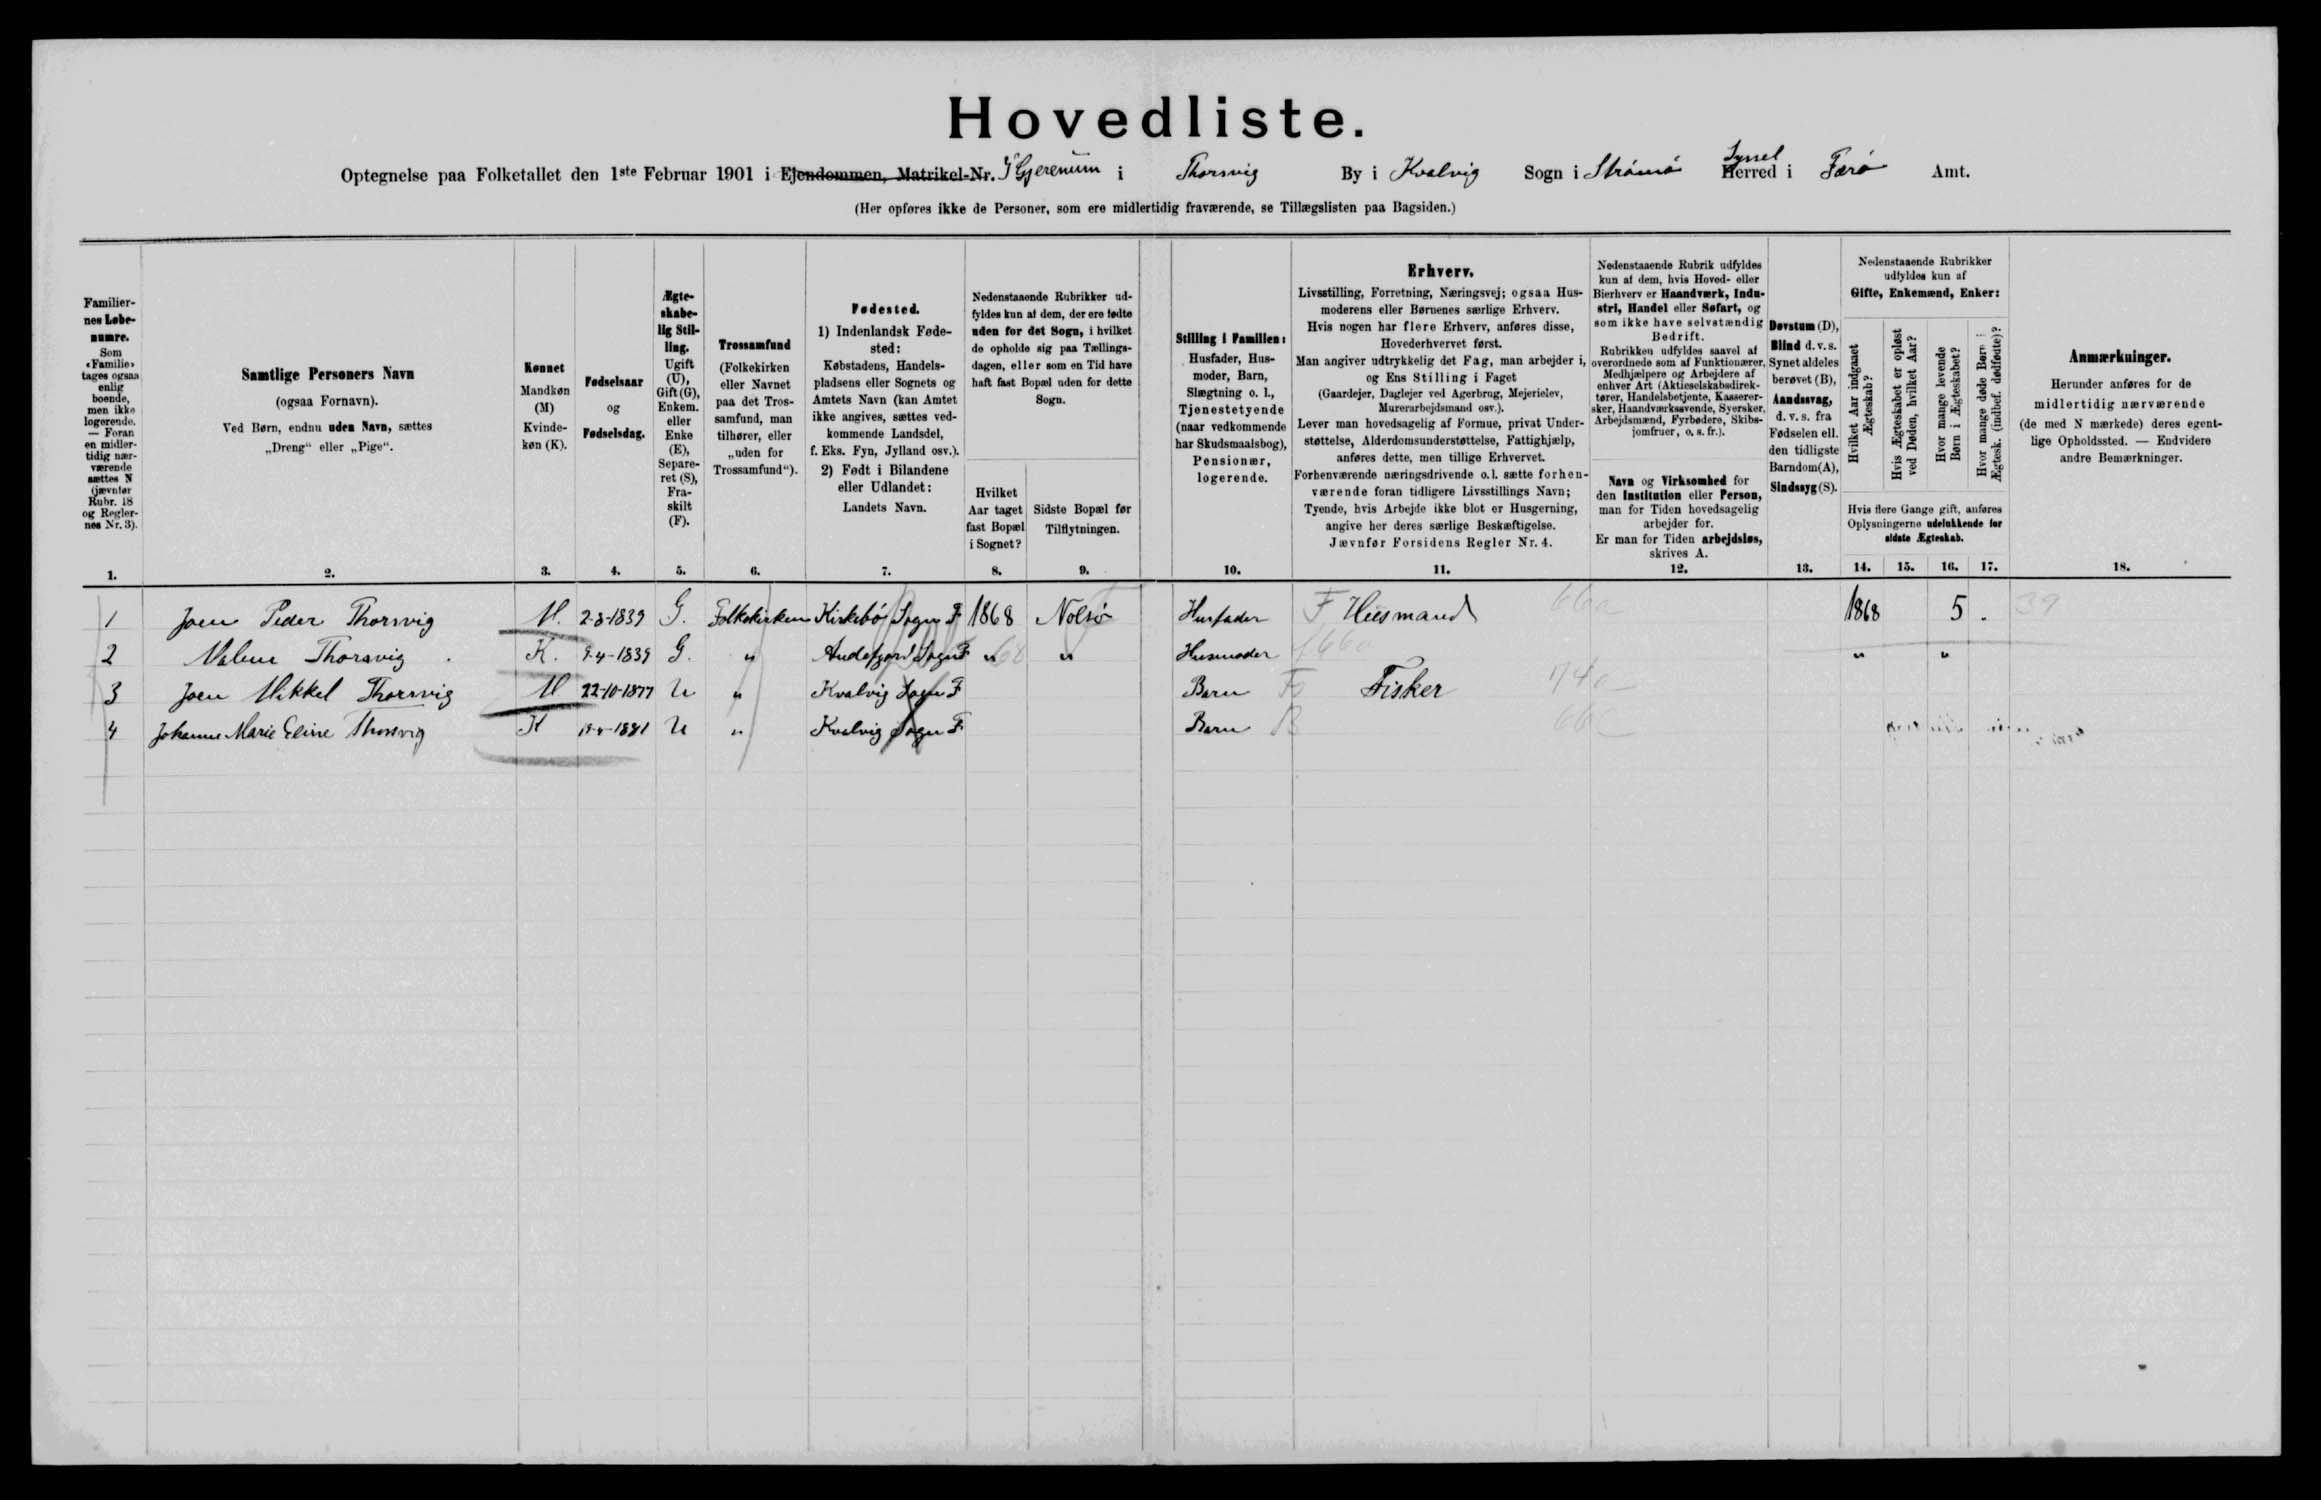 Hovedliste.
Optegnelse paa Folketallet den 1ste Februar 1901 i Ejendommen, Matrikel-Nr. i Thorsvig By i Kvalvig Sogn i Strømø Syssel Herred i Færø Amt.
(Her opføres ikke de Personer, som ere midlertidig fraværende, se Tillægslisten paa Bagsiden.)
Familiernes Løbenumre.
Som «Familie» tages ogsaa enlig boende, men ikke logerende. — Foran en midlertidig nærværende sættes N (jævnfør Rubr. 18 og Reglernes Nr. 3).
1.
Samtlige Personers Navn
(ogsaa Fornavn).
Ved Børn, endnu uden Navn, sættes
„Dreng“ eller „Pige“.
2.
Kønnet
Mandkøn (M)
Kvindekøn (K).
3.
Fødselsaar
og
Fødselsdag.
4.
Ægteskabelig Stilling.
Ugift (U), Gift (G), Enkem. eller Enke (E), Separeret (S), Fraskilt (F).
5.
Trossamfund
(Folkekirken eller Navnet paa det Trossamfund, man tilhører, eller „uden for Trossamfund“).
6.
Fødested.
1) Indenlandsk Fødested:
Købstadens, Handelspladsens eller Sognets og Amtets Navn (kan Amtet ikke angives, sættes vedkommende Landsdel, f. Eks. Fyn, Jylland osv.).
2) Født i Bilandene eller Udlandet:
Landets Navn.
7.
Nedenstaaende Rubrikker udfyldes kun af dem, der ere fødte uden for det Sogn, i hvilket de opholde sig paa Tællingsdagen, eller som en Tid have haft fast Bopæl uden for dette Sogn.
Hvilket Aar taget fast Bopæl i Sognet?
8.
Sidste Bopæl før Tilflytningen.
9.
Stilling i Familien:
Husfader, Husmoder, Barn, Slægtning o. l., Tjenestetyende (naar vedkommende har Skudsmaalsbog), Pensionær, logerende.
10.
Erhverv.
Livsstilling, Forretning, Næringsvej; ogsaa Husmoderens eller Børnenes særlige Erhverv.
Hvis nogen har flere Erhverv, anføres disse, Hovederhvervet først.
Man angiver udtrykkelig det Fag, man arbejder i, og Ens Stilling i Faget
(Gaardejer, Daglejer ved Agerbrug, Mejerielev, Murerarbejdsmand osv.).
Lever man hovedsagelig af Formue, privat Understøttelse, Alderdomsunderstøttelse, Fattighjælp, anføres dette, men tillige Erhvervet.
Forhenværende næringsdrivende o. l. sætte forhenværende foran tidligere Livsstillings Navn;
Tyende, hvis Arbejde ikke blot er Husgerning, angive her deres særlige Beskæftigelse.
Jævnfør Forsidens Regler Nr. 4.
11.
Nedenstaaende Rubrik udfyldes kun af dem, hvis Hoved- eller Bierhverv er Haandværk, Industri, Handel eller Søfart, og som ikke have selvstændig Bedrift.
Rubrikken udfyldes saavel af overordnede som af Funktionærer, Medhjælpere og Arbejdere af enhver Art (Aktieselskabsdirektører, Handelsbetjente, Kasserersker, Haandværkssvende, Syersker, Arbejdsmænd, Fyrbødere, Skibsjomfruer, o. s. fr.).
Navn og Virksomhed for den Institution eller Person, man for Tiden hovedsagelig arbejder for.
Er man for Tiden arbejdsløs, skrives A.
12.
Døvstum (D),
Blind d. v. s. Synet aldeles berøvet (B),
Aandssvag, d. v. s. fra Fødselen ell. den tidligste Barndom (A),
Sindssyg (S).
13.
Nedenstaaende Rubrikker udfyldes kun af
Gifte, Enkemænd, Enker:
Hvilket Aar indgaaet Ægteskab?
Hvis Ægteskabet er opløst ved Døden, hvilket Aar?
Hvor mange levende Børn i Ægteskabet?
Hvor mange døde Børn i Ægtesk. (indbef. dødfødte)?
Hvis flere Gange gift, anføres Oplysningerne udelukkende for sidste Ægteskab.
14. 15. 16. 17.
Anmærkninger.
Herunder anføres for de midlertidig nærværende (de med N mærkede) deres egentlige Opholdssted. — Endvidere andre Bemærkninger.
18.
1 Joen Peder Thorsvig M. 2-8-1839 G. Folkekirken Kirkebø Sogn F 1868 Nolsø Husfader F Huusmand 66a 1868 5 . 39
2 Malene Thorsvig K. 9-4-1839 G. „ Andefjord Sogn F „ 68 „ Husmoder 66a „ „
3 Joen Mikkel Thorsvig M 22-10-1877 U „ Kvalvig Sogn F Barn Fisker 74a
4 Johanne Marie Eline Thorsvig K U „ Kvalvig Sogn F Barn B 66a